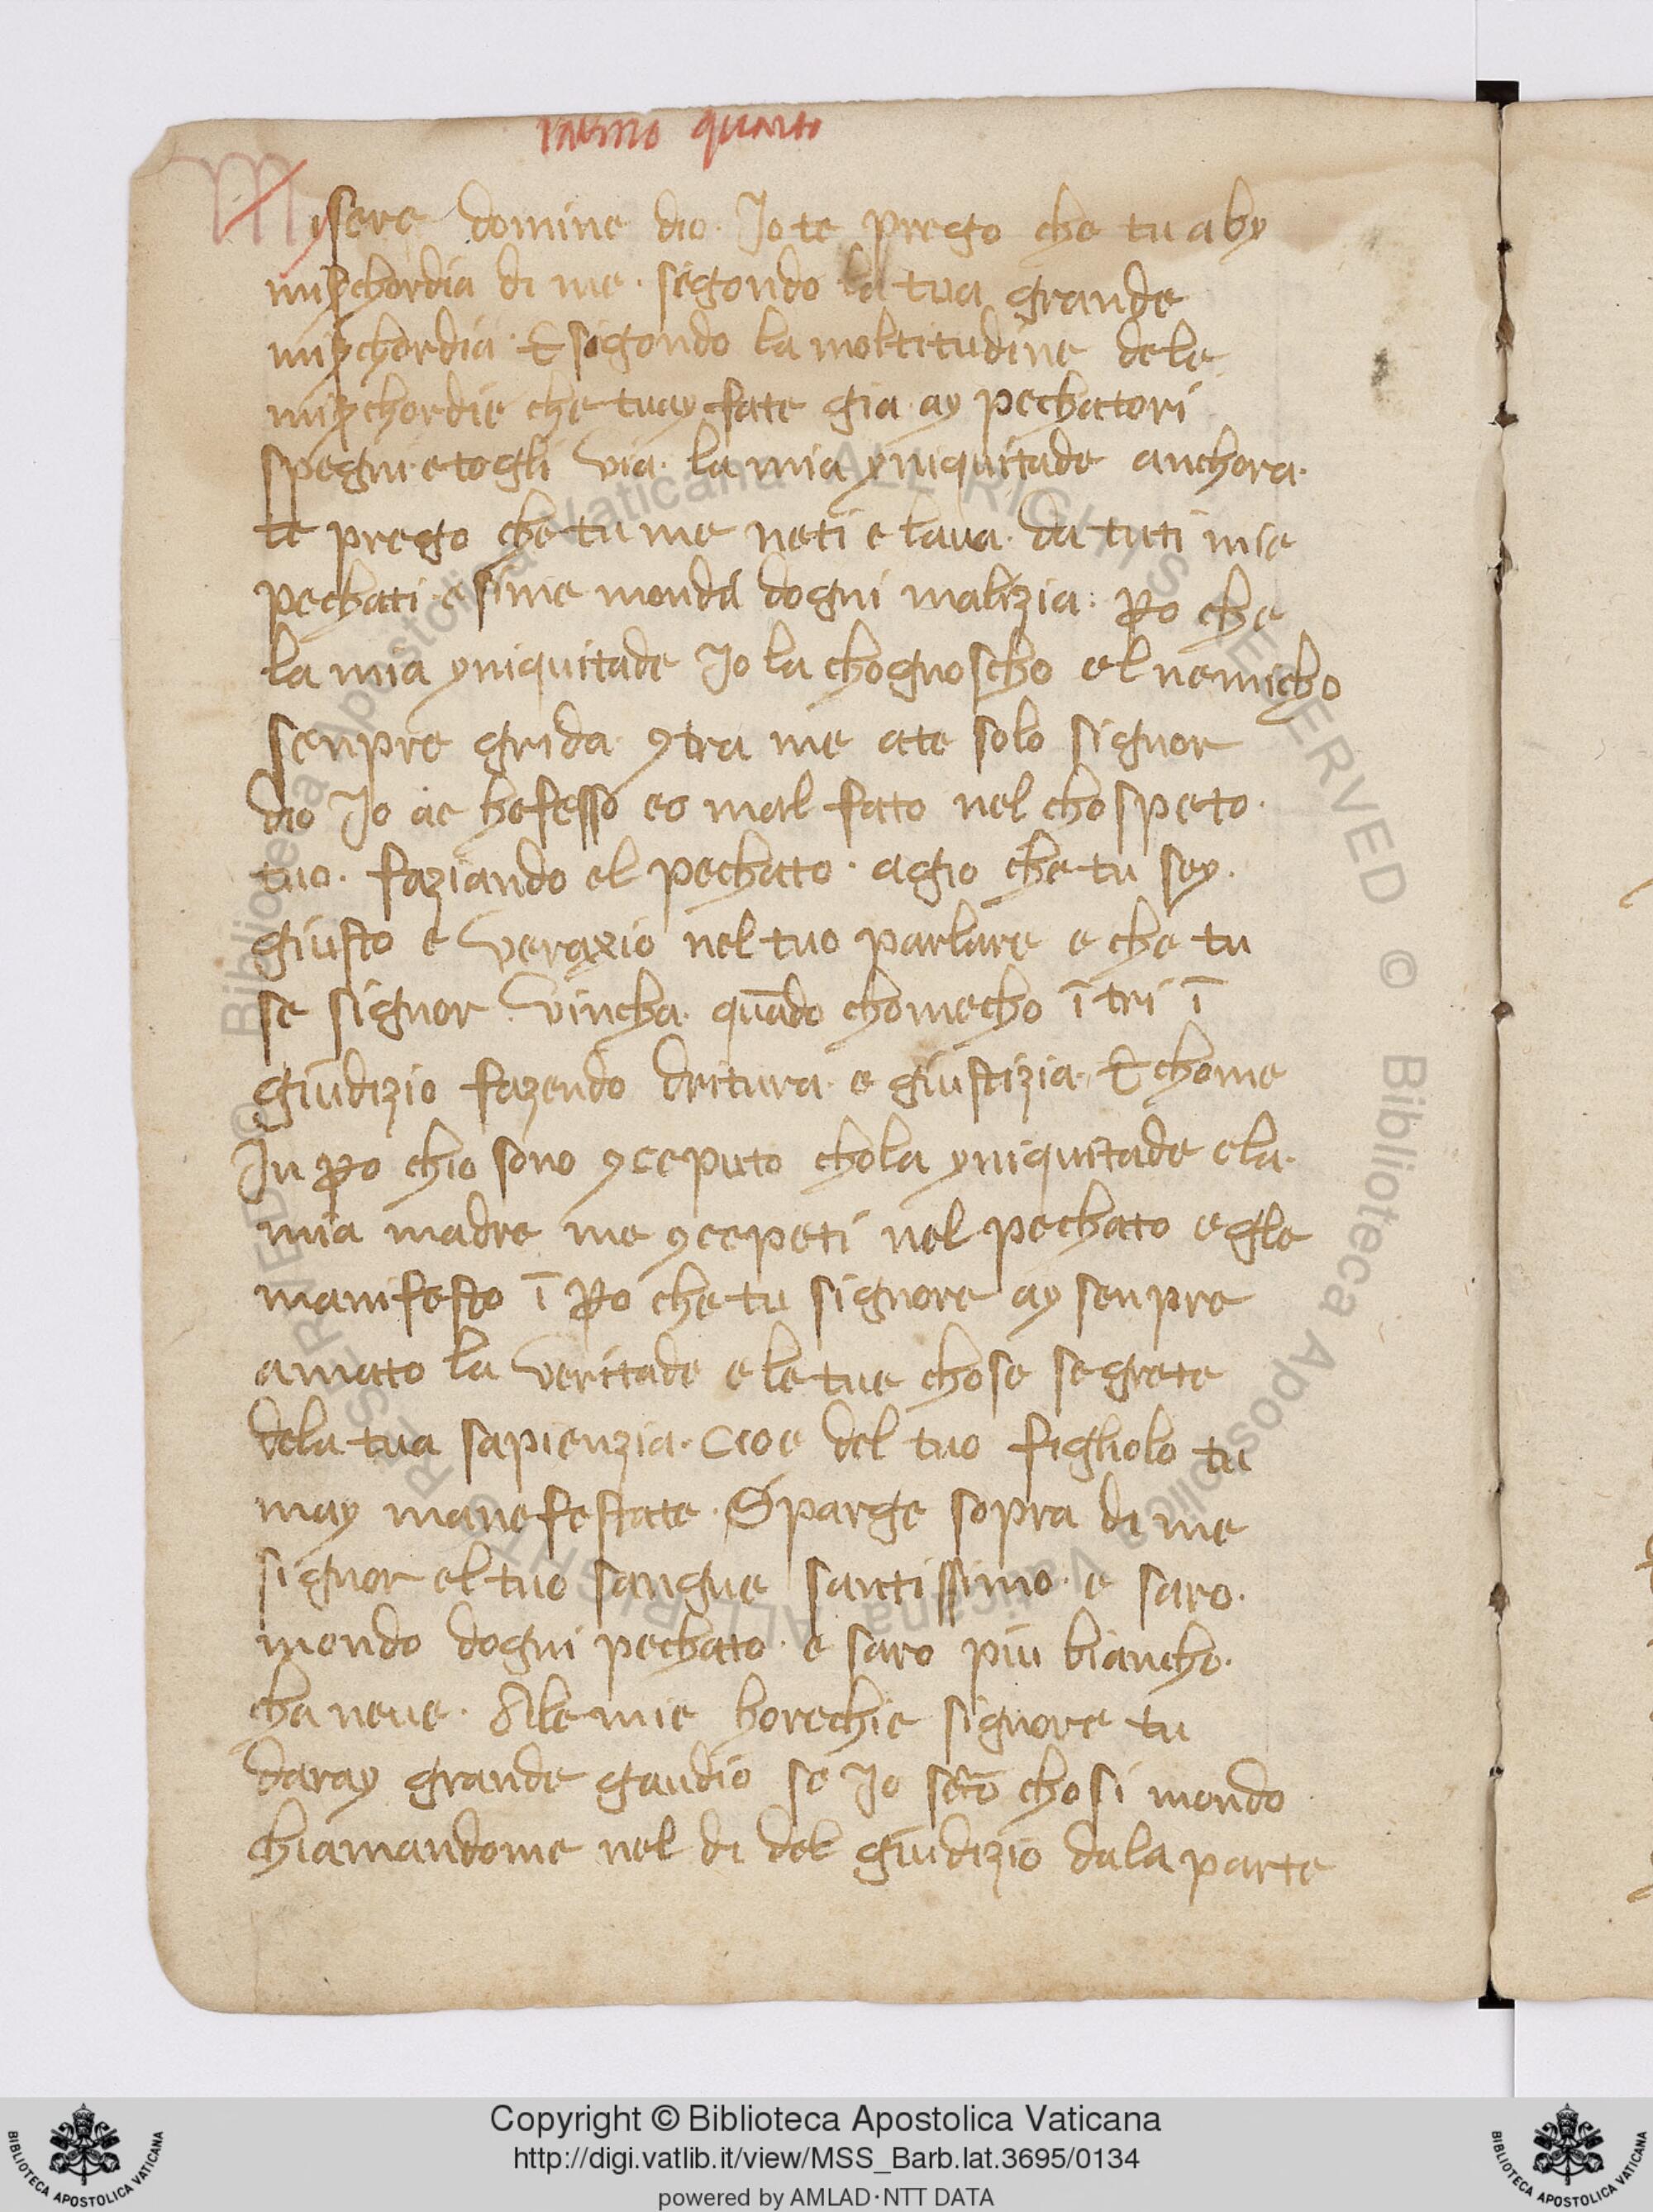 salmo quarto
Misere domine dio. Jo te prego che tu aby
mis̱chordia di me. segondo la tua grande
mis̱chordia. E sigondo la moltitudine dele
mis̱chordie che tu ay fate gia. ay pechatori
spegni. e togli via. la mia yniquitade anchora.
te prego che tu me neti e laua. da tuti mie
pechati. e sime monda dogni malizia. ꝑo che
la mia yniquitade Jo la chognoscho el nemicho
senpre grida ꝯtra me ate solo signor
dio Jo ae hofesso eo mal fato nel chospeto.
tuo. faziando el pechato. agio che tu sey.
giusto e veraxio nel tuo parlare e che tu
se signor vincha. quādo chomecho ītri ī
giudizio fazendo dritura. e giustizia. E chome
In ꝑo chio sono ꝯceputo chola yniquitade e la.
mia madre me ꝯcepeti nel pechato egle
manifesto ī ꝑo che tu signore ay senpre
amato la veritade e le tue chose segrete
dela tua sapienzia. Cioe del tuo figliolo tu
may manefestate. Sparge sopra di me
signor el tuo sangue santissimo. e saro.
mondo dogni pechato. e saro piu biancho.
cha neue. Ale mie horechie signore tu
daray grande gaudio se Jo serō chosi mondo
chiamandome nel di del giudizio dala parte
Copyright © Biblioteca Apostolica Vaticana
http://digi.vatlib.it/view/MSS_Barb.lat.3695/0134
powered by AMLAD·NTT DATA
BIBLIOTECA APOSTOLICA VATICANA
BIBLIOTECA APOSTOLICA VATICANA
Biblioteca Apostolica Vaticana ALL RIGHTS RESERVED © Biblioteca Apostolica Vaticana ALL RIGHTS RESERVED ©